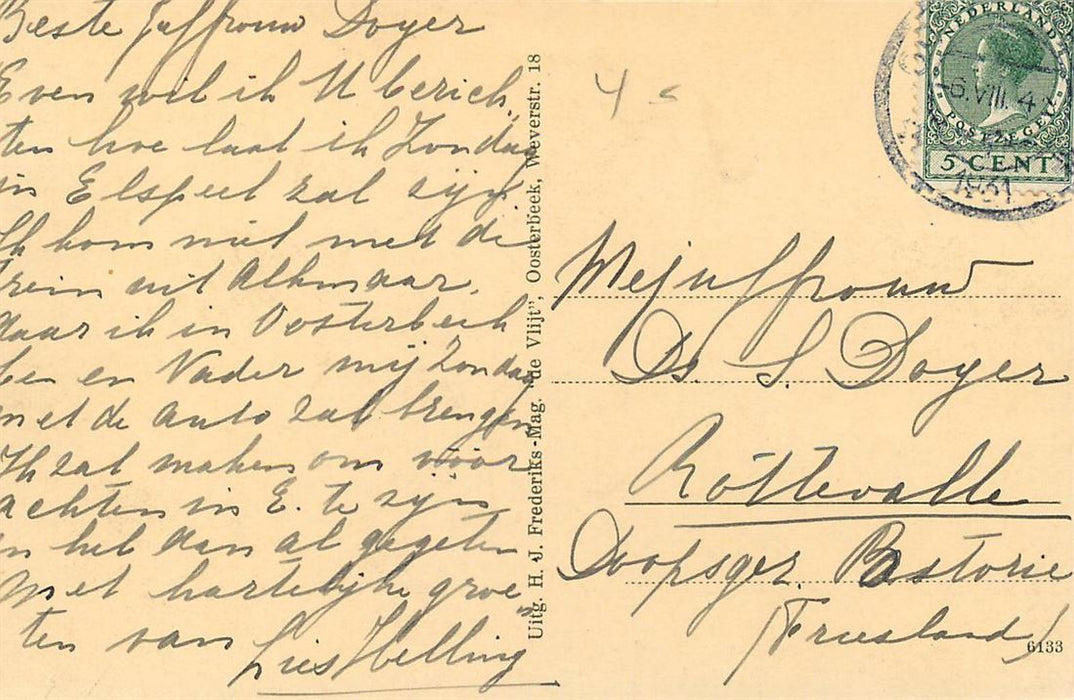 Beste Juffrouw Doyer
Even wil ik U berich-
ten hoe laat ik Zondag
in Elspeet zal zijn.
Ik kom niet met de
trein uit Alkmaar,
daar ik in Oosterbeek
ben en Vader mij Zondag
met de auto zal brengen
Ik zal maken om vóór
achten in E. te zijn
en heb dan al gegeten
Met hartelijke groe-
ten van
Lies Helling
Uitg. H. J. Frederiks-Mag. "de Vlijt", Oosterbeek, Weverstr. 18
4
NEDERLAND
POSTZEGEL
5 CENT
6.VIII.4
1931
Mejuffrouw
Ds. S. Doyer
Rottevalle
Doopsgez. Pastorie
(Friesland)
6133